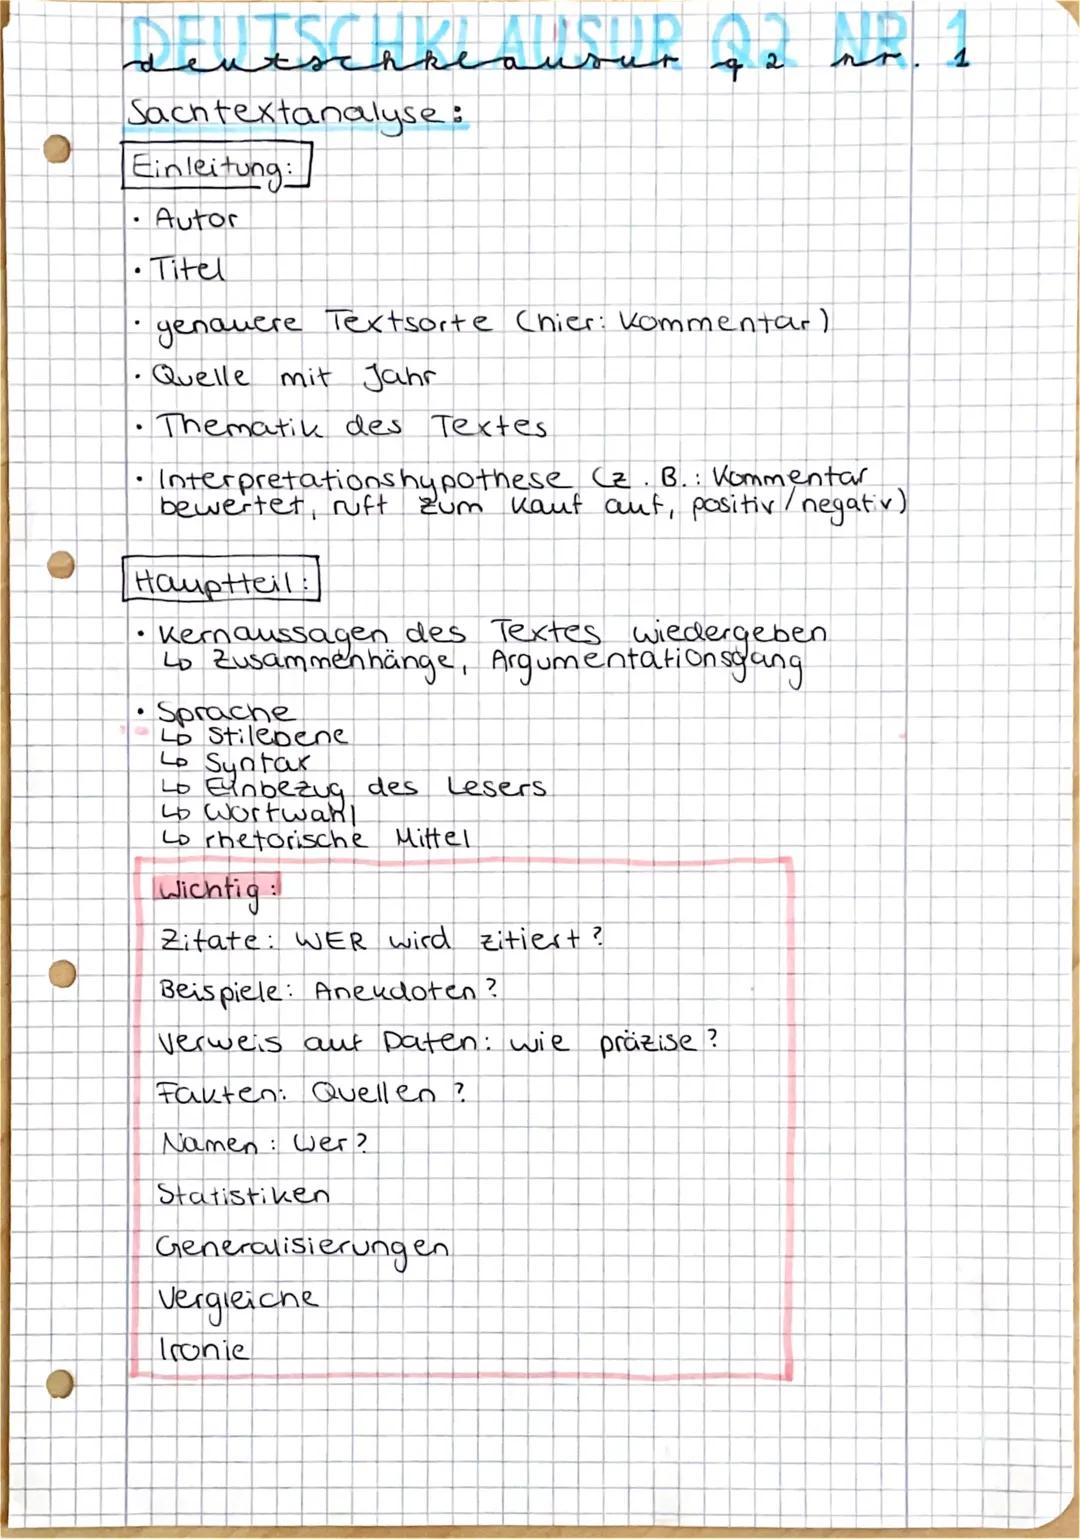 DEUTSCHKLAUSUR Q2 NR. 1
deutschklausur q2 nr. 1
Sachtextanalyse:
Einleitung:
· Autor
· Titel
· genauere Textsorte (hier: Kommentar)
· Quelle mit Jahr
· Thematik des Textes
· Interpretationshypothese (z. B.: Kommentar
bewertet, ruft zum Kauf auf, positiv/negativ)
Hauptteil:
· Kernaussagen des Textes wiedergeben
↳ Zusammenhänge, Argumentationsgang
· Sprache
↳ Stilebene
↳ Syntax
↳ Einbezug des Lesers
↳ Wortwahl
↳ rhetorische Mittel
Wichtig:
Zitate: WER wird zitiert?
Beispiele: Anekdoten?
Verweis auf Daten: wie präzise?
Fakten: Quellen?
Namen: Wer?
Statistiken
Generalisierungen
Vergleiche
Ironie